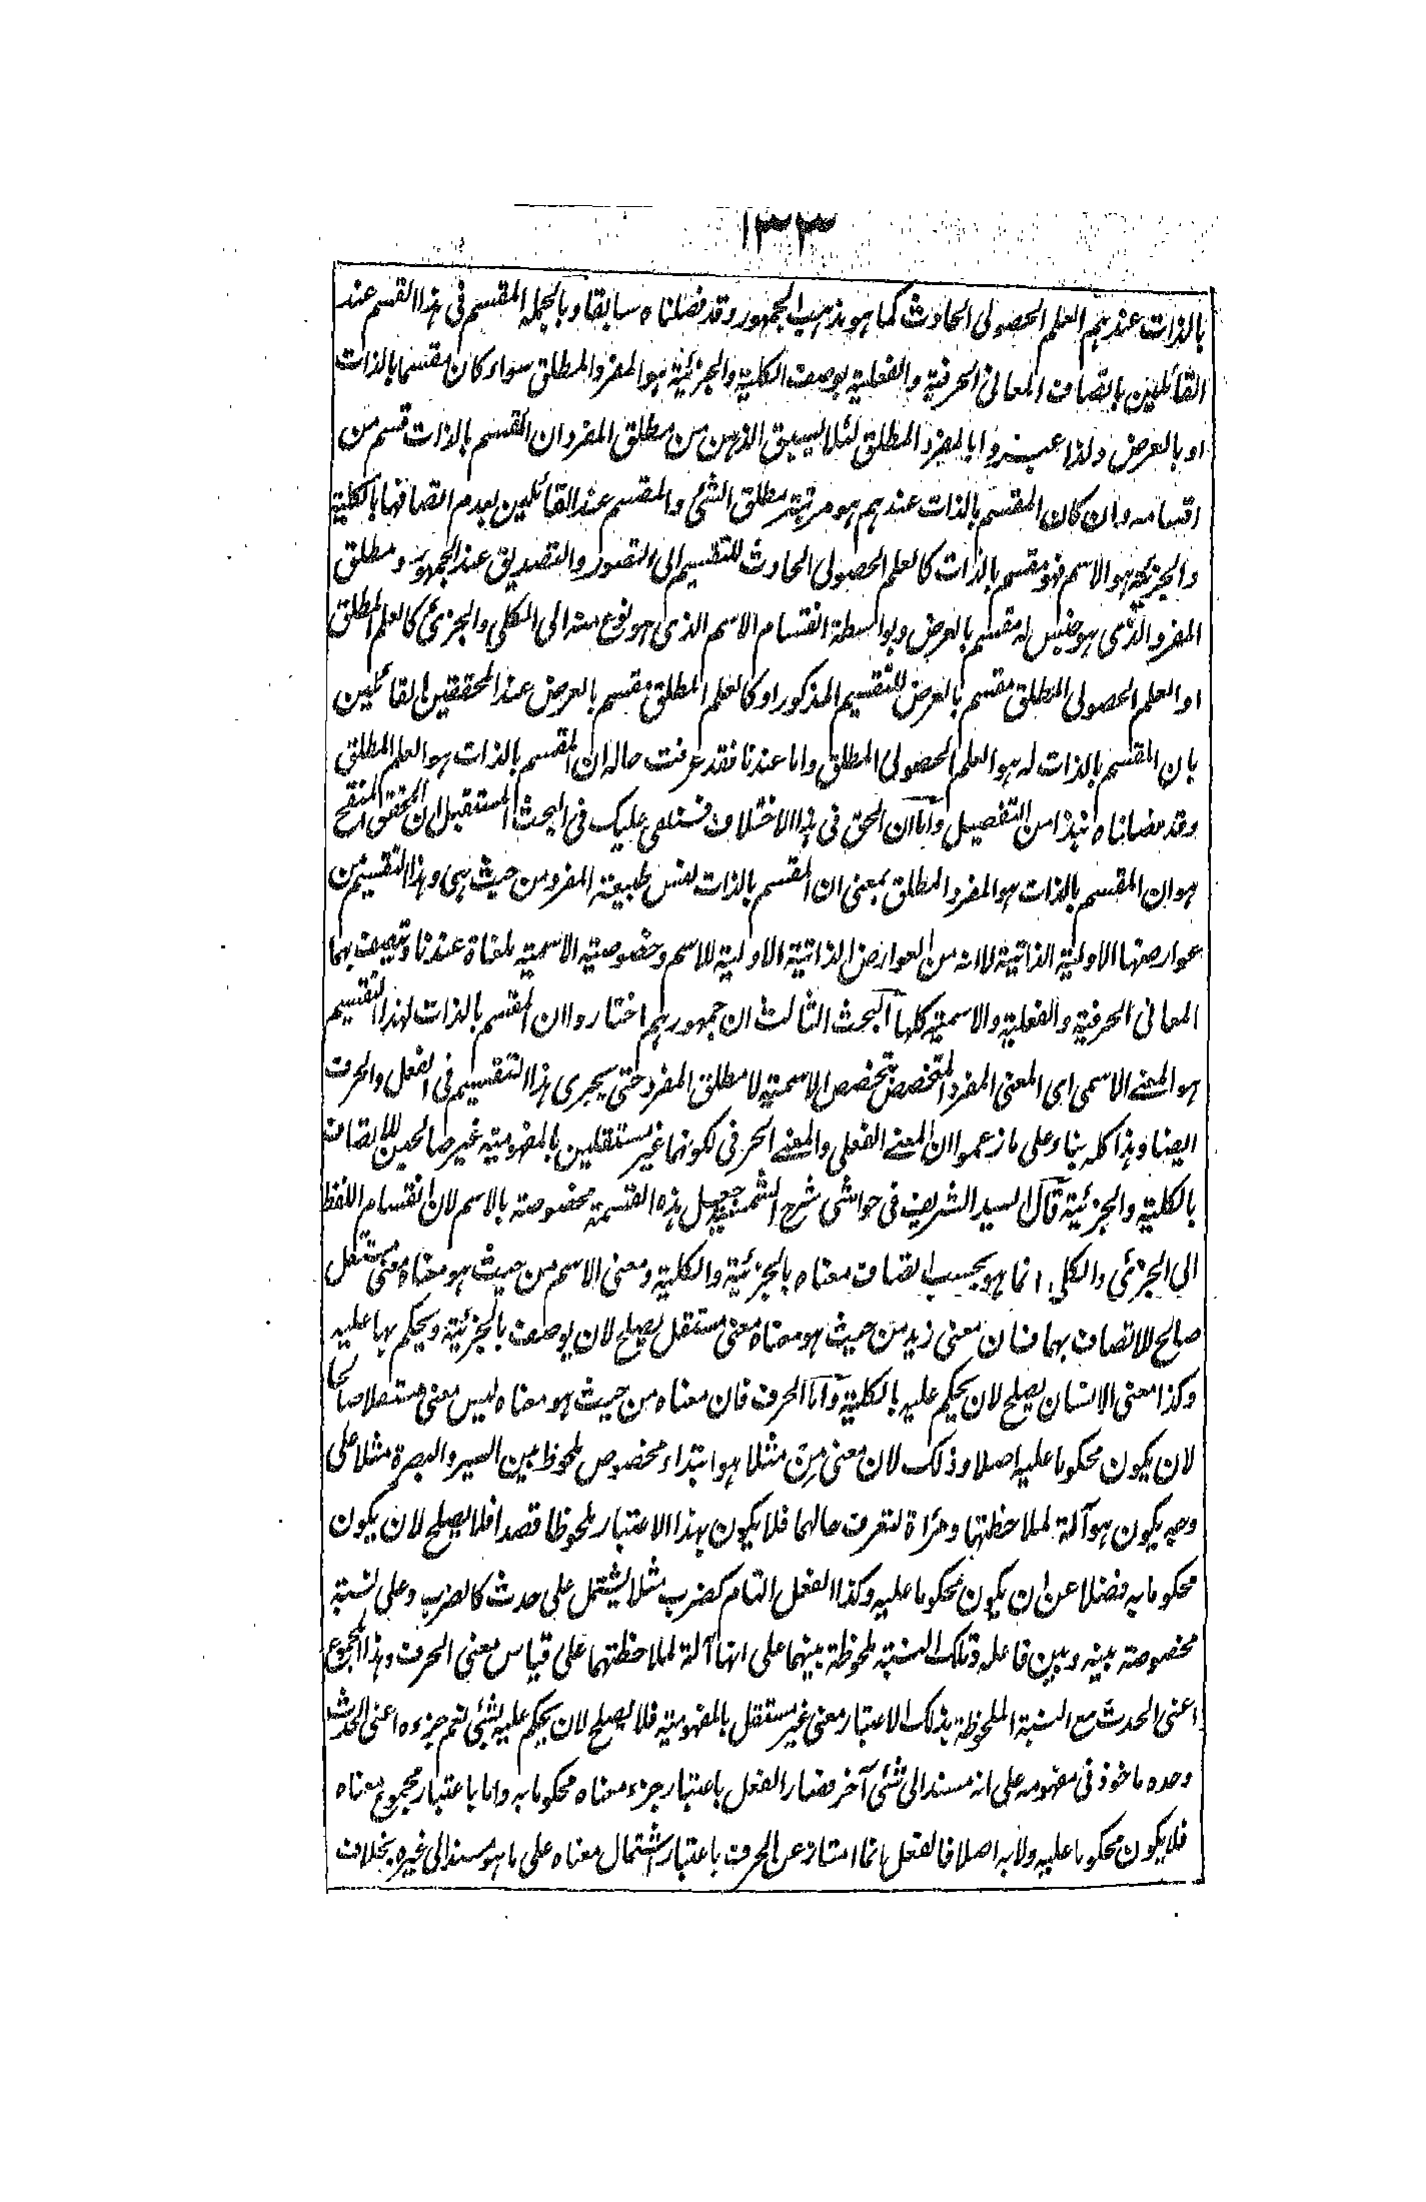 ١٣٣
بالذات عندهم العلم الحصولى الحادث كما هو مذهب الجمهور وقد فصلناه سابقا وبالجملة المقسم فى هذا القسم عند
القائلين باتصاف المعانى الحرفية والفعلية بوصف الكلية والجزئية هو المفرد المطلق سواء كان مقسما بالذات
او بالعرض ولذا عبروا بالمفرد المطلق لئلا يسبق الذهن من مطلق المفرد ان المقسم بالذات قسم من
اقسامه وان كان المقسم بالذات عندهم هو مرتبة مطلق الشئ والمقسم عند القائلين بعدم اتصافها بالكلية
والجزئية هو الاسم فهو مقسم بالذات كالعلم الحصولى الحادث للتقسيم الى التصور والتصديق عند الجمهور ومطلق
المفرد الذى هو جنس له مقسم بالعرض وبواسطة انقسام الاسم الذى هو نوع منه الى الكلى والجزئى كالعلم المطلق
او العلم الحصولى المطلق مقسم بالعرض للتقسيم المذكور او كالعلم المطلق مقسم بالعرض عند المحققين القائلين
بان المقسم بالذات له هو العلم الحصولى المطلق واما عندنا فقد عرفت حاله ان المقسم بالذات هو العلم المطلق
وقد فصلناه نبذا من التفصيل واما ان الحق فى هذا الاختلاف فسنلقى عليك فى البحث المستقبل ان المحقق المنقح
هو ان المقسم بالذات هو المفرد المطلق بمعنى ان المقسم بالذات نفس طبيعة المفرد من حيث هى وهذا التقسيم من
عوارضها الاولية الذاتية لا انه من العوارض الذاتية الاولية للاسم وخصوصية الاسمية ملغاة عندنا وتتصف بهما
المعانى الحرفية والفعلية والاسمية كلها البحث الثالث ان جمهورهم اختاروا ان المقسم بالذات لهذا التقسيم
هو المعنے الاسمى اى المعنى المفرد المتخصص بتخصص الاسمية لا مطلق المفرد حتى يجرى هذا التقسيم فى الفعل والحرف
ايضا وهذا كله بناء على ما زعموا ان المعنے الفعلى والمعنے الحرفى لكونهما غير مستقلين بالمفهومية غير صالحين للاتصاف
بالكلية والجزئية قال السيد الشريف فى حواشى شرح الشمسية جعل هذه القسمة مخصوصة بالاسم لان انقسام اللفظ
الى الجزئى والكلى انما هو بحسب اتصاف معناه بالجزئية والكلية ومعنى الاسم من حيث هو معناه معنى مستقل
صالح للاتصاف بهما فان معنى زيد من حيث هو معناه معنى مستقل يصلح لان يوصف بالجزئية ويحكم بها عليه
وكذا معنى الانسان يصلح لان يحكم عليه بالكلية واما الحرف فان معناه من حيث هو معناه ليس معنى مستقلا صالحا
لان يكون محكوما عليه اصلا وذلك لان معنى مِنْ مثلا هو ابتداء مخصوص ملحوظ بين السير والبصرة مثلا على
وجه يكون هو آلة لملاحظتها ومرآة لتعرف حالهما فلا يكون بهذا الاعتبار ملحوظا قصدا فلا يصلح لان يكون
محكوما به فضلا عن ان يكون محكوما عليه وكذا الفعل التام كضرب مثلا يشتمل على حدث كالضرب وعلى نسبة
مخصوصة بينه وبين فاعله وتلك النسبة ملحوظة بينهما على انها آلة لملاحظتهما على قياس معنى الحرف وهذا المجموع
اعنى الحدث مع النسبة الملحوظة بذلك الاعتبار معنى غير مستقل بالمفهومية فلا يصلح لان يحكم عليه بشئ نعم جزءه اعنى الحدث
وحده ماخوذ فى مفهومه على انه مسند الى شئ آخر فصار الفعل باعتبار جزء معناه محكوما به واما باعتبار مجموع معناه
فلا يكون محكوما عليه ولا به اصلا فالفعل انما امتاز عن الحرف باعتبار اشتمال معناه على ما هو مسند الى غيره بخلاف